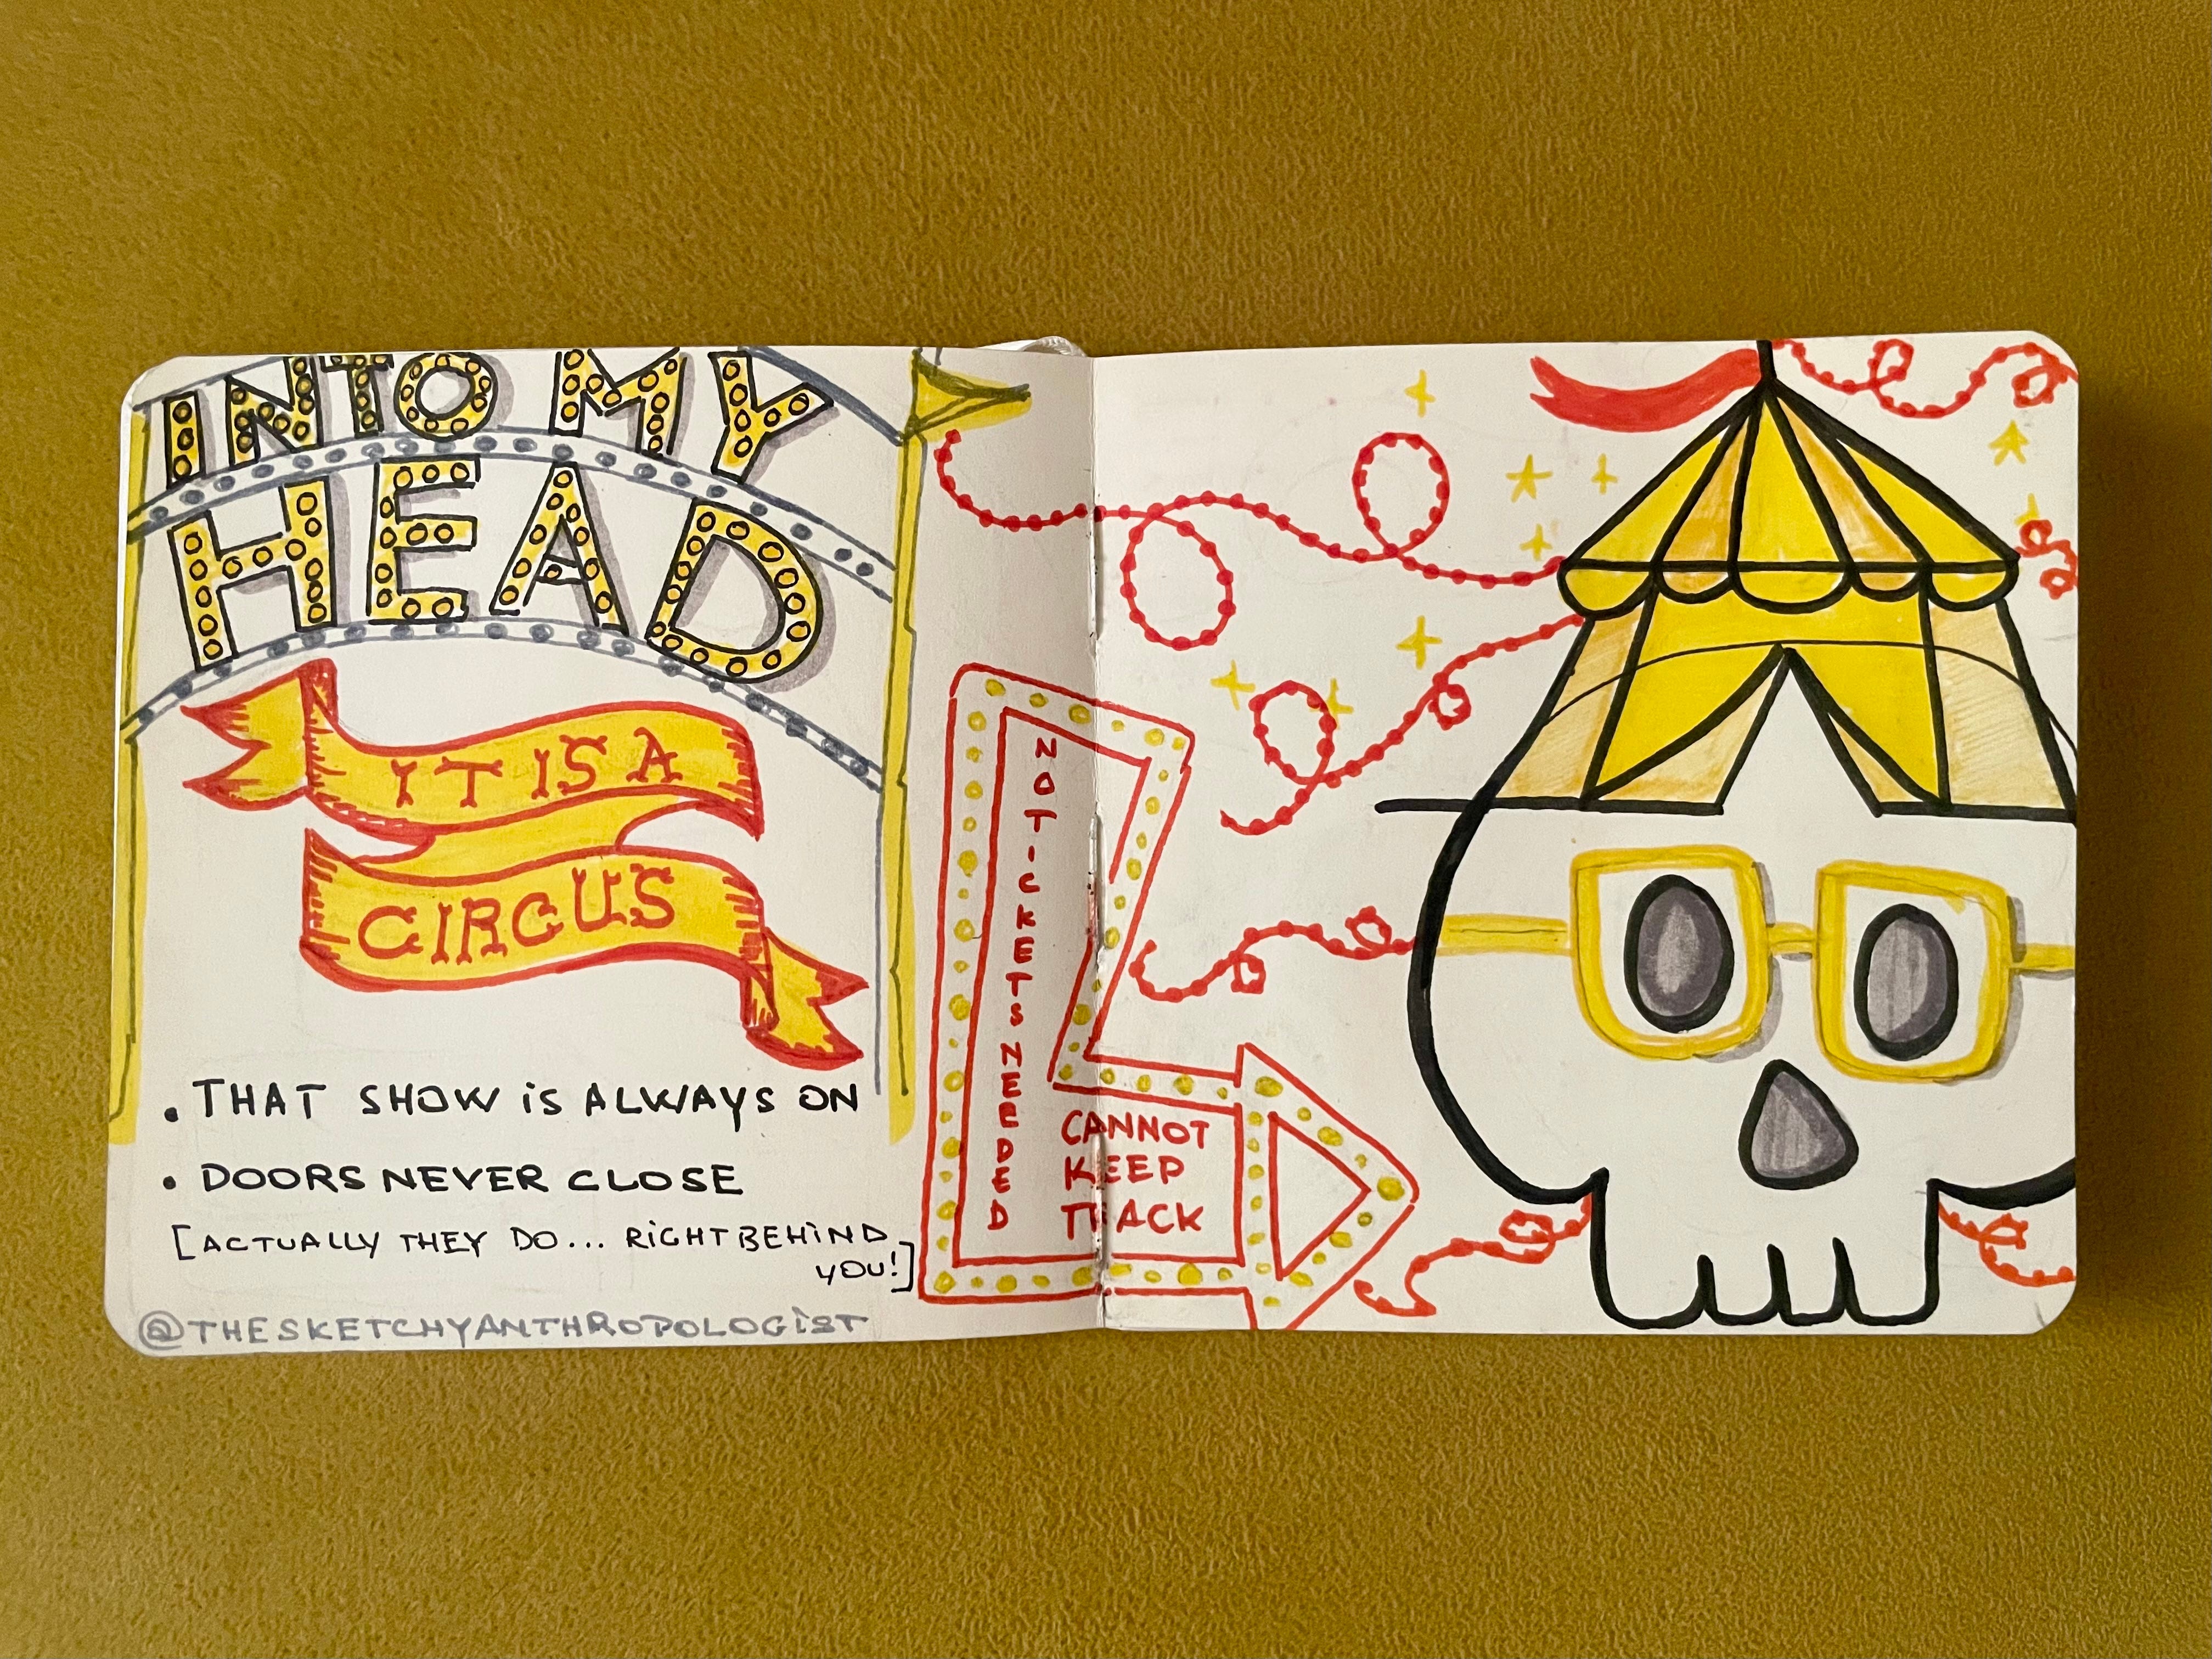 INTO MY
HEAD
IT IS A
CIRCUS
• THAT SHOW IS ALWAYS ON
• DOORS NEVER CLOSE
[ACTUALLY THEY DO... RIGHT BEHIND
YOU!]
@THESKETCHYANTHROPOLOGIST
NO TICKETS NEEDED
CANNOT
KEEP
TRACK